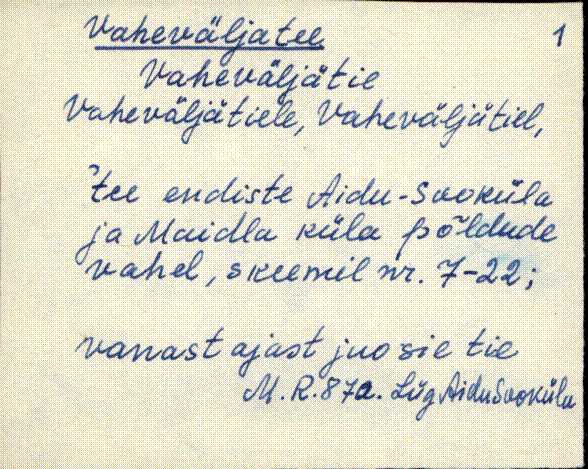 Vaheväljatee 1
Vaheväljätie
Vaheväljätiele, Vaheväljätiel,
tee endiste Aidu-Sooküla
ja Maidla küla põldude
vahel, skeemil nr. 7-22;
vanast ajast juo sie tie
M. R. 87a. Lüg Aidu Sooküla